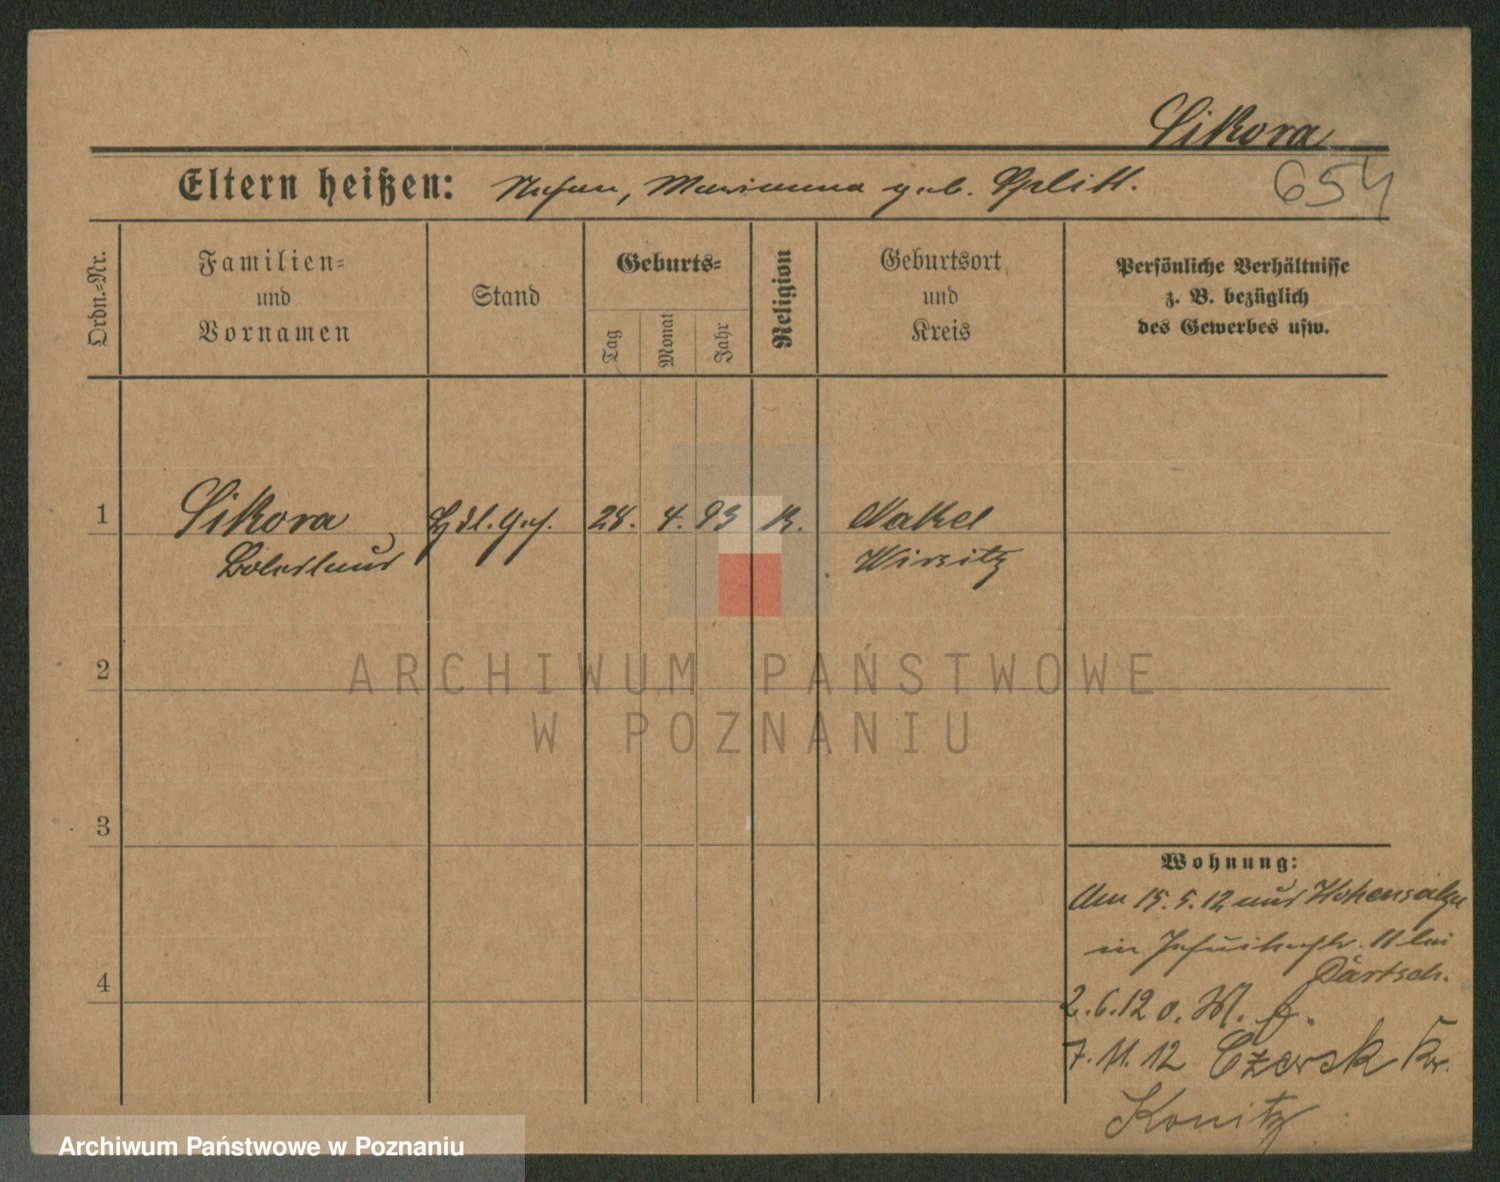 Sikora
Eltern heißen: Stefan, Marianna geb. Splitt.
654
Ordn.-Nr.
Familien-
und
Vornamen
Stand
Geburts-
Tag
Monat
Jahr
Religion
Geburtsort
und
Kreis
Persönliche Verhältnisse
z. B. bezüglich
des Gewerbes usw.
1 Sikora Hdl. Geh. 28. 4. 93 K. Nakel
Boleslaus Wirsitz
2
ARCHIWUM PAŃSTWOWE
W POZNANIU
3
Wohnung:
Am 15. 5. 12 aus Hohensalza
in Jesuitenstr. 11 bei
Partsch.
4
2. 6. 12 o. W. f.
7. 11. 12 Czersk Kr.
Konitz
Archiwum Państwowe w Poznaniu